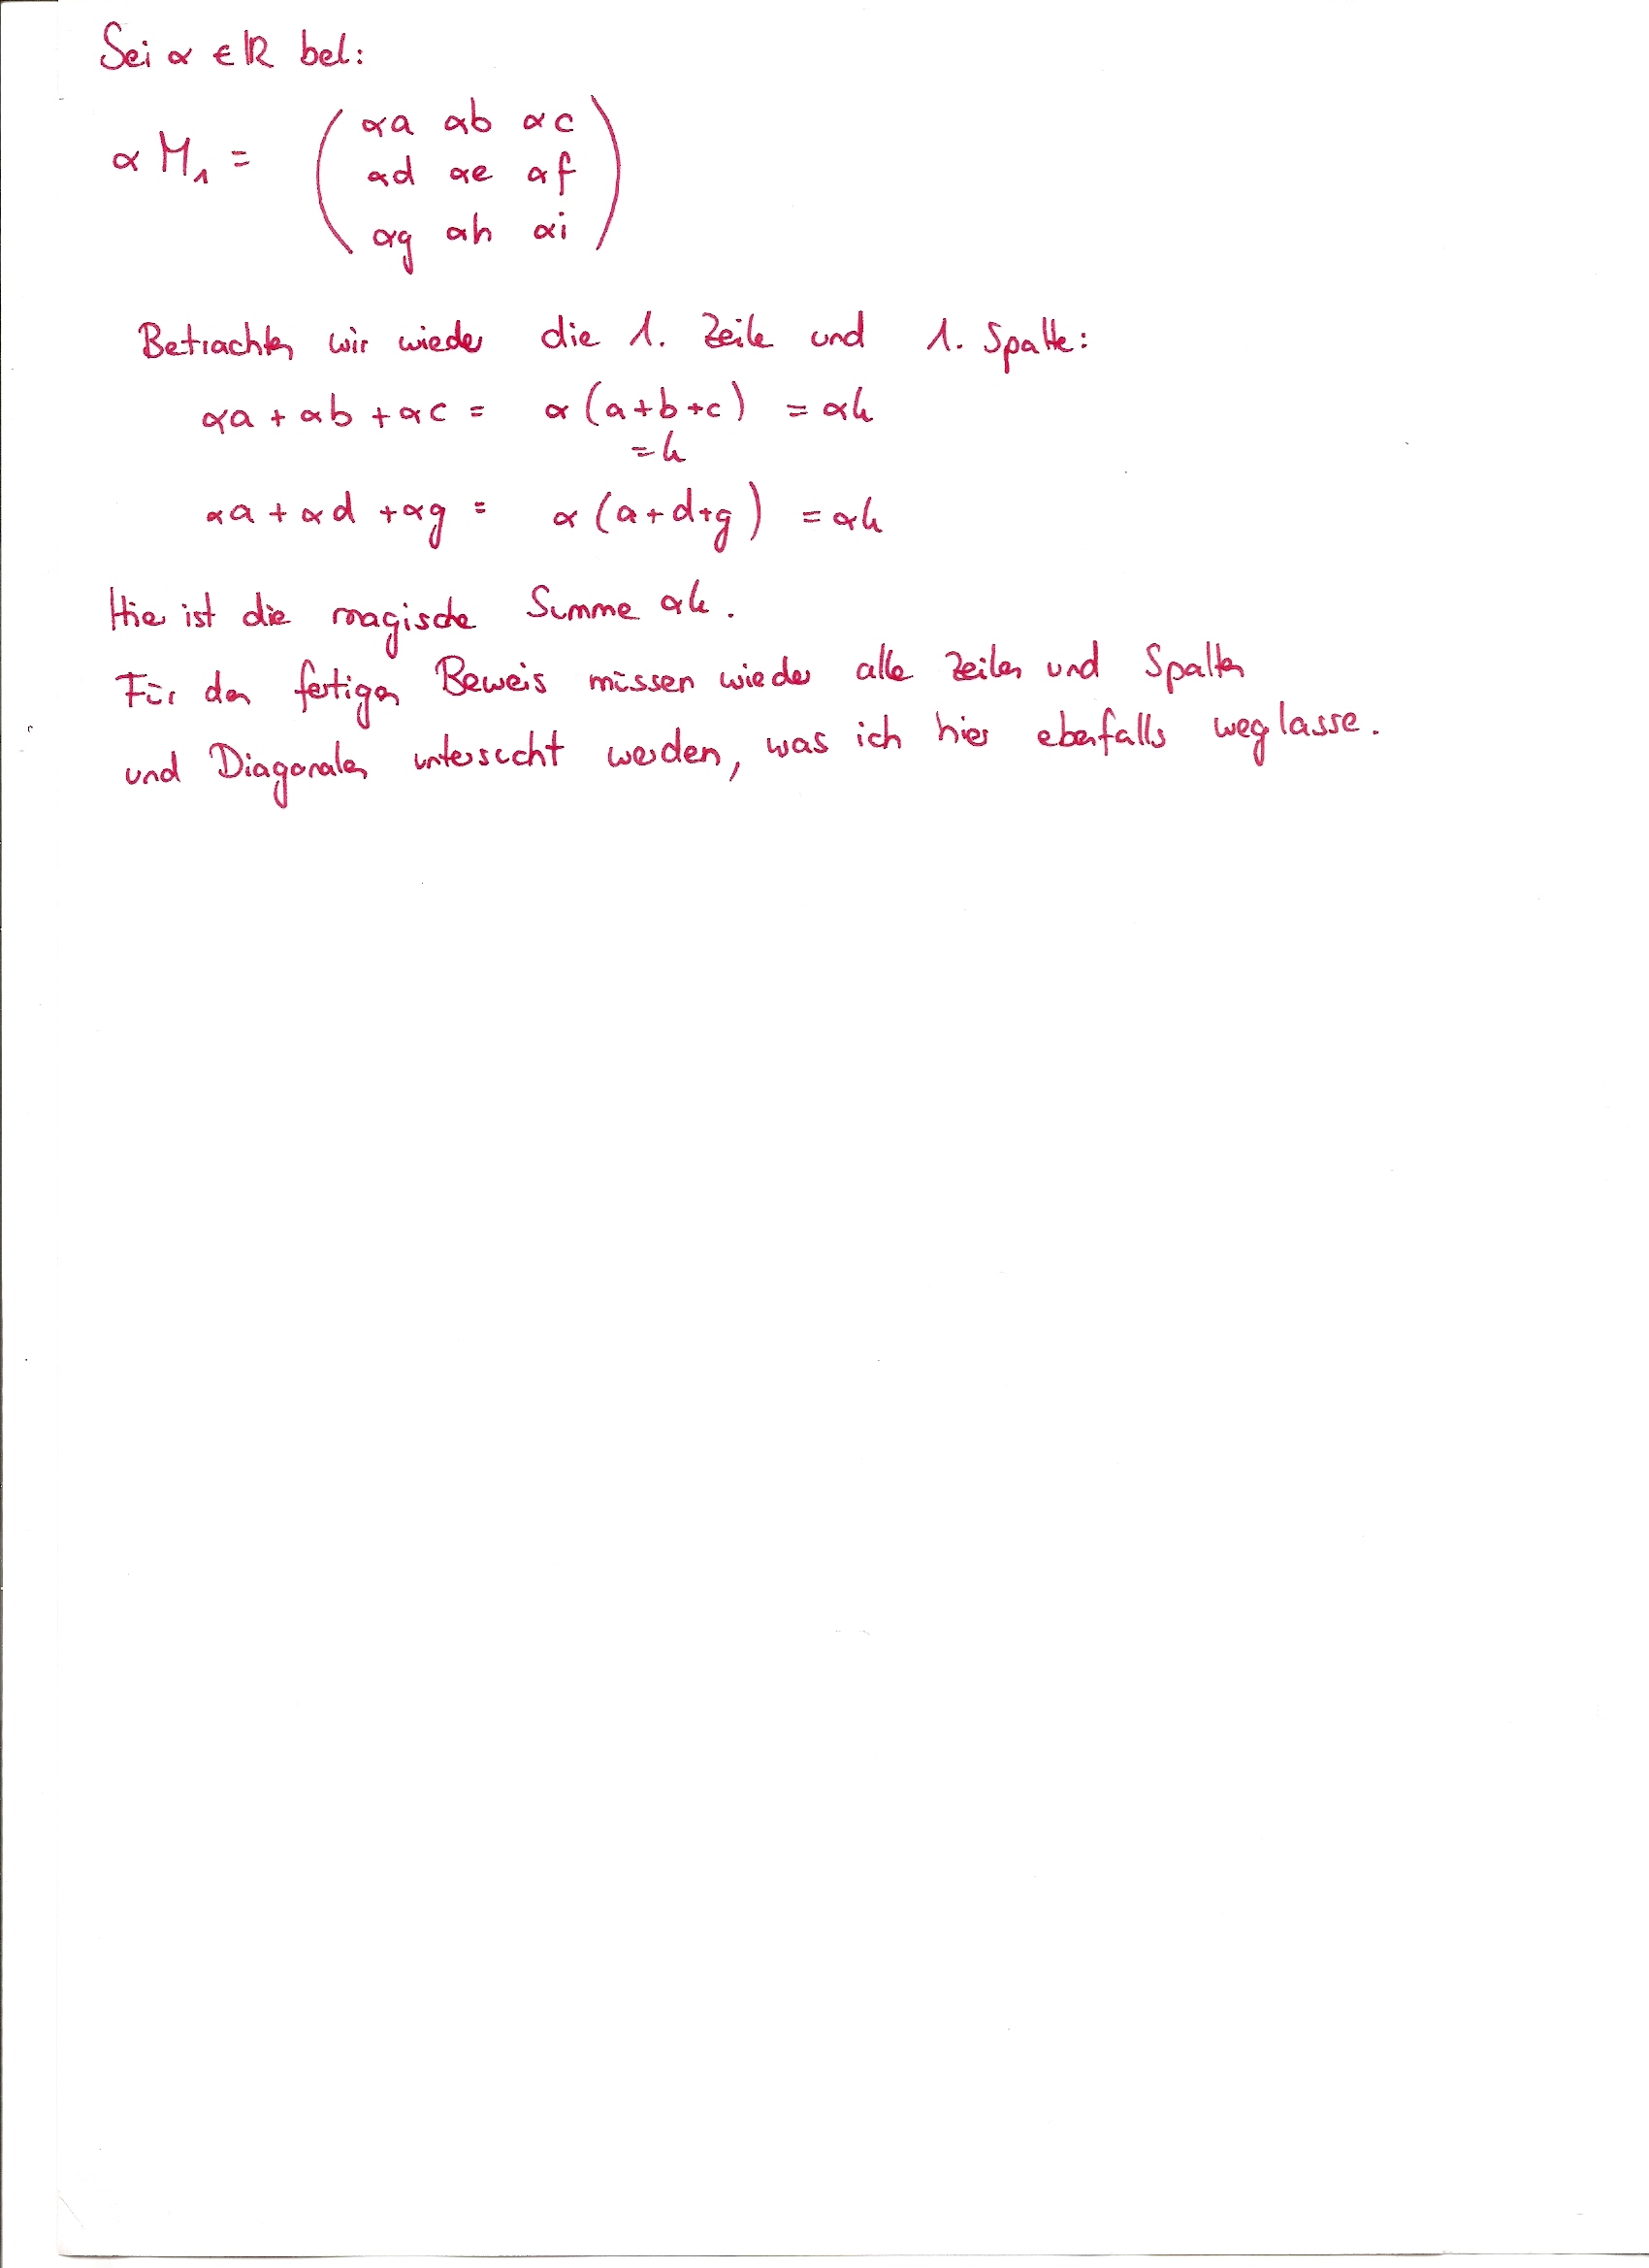 Sei α ∈ ℝ bel:
αM₁ = ( αa αb αc
αd αe αf
αg αh αi )
Betrachten wir wieder die 1. Zeile und 1. Spalte:
αa + αb + αc = α (a+b+c) = αk
= k
αa + αd + αg = α (a+d+g) = αk
Hier ist die magische Summe αk.
Für den fertigen Beweis müssen wieder alle Zeilen und Spalten
und Diagonalen untersucht werden, was ich hier ebenfalls weglasse.